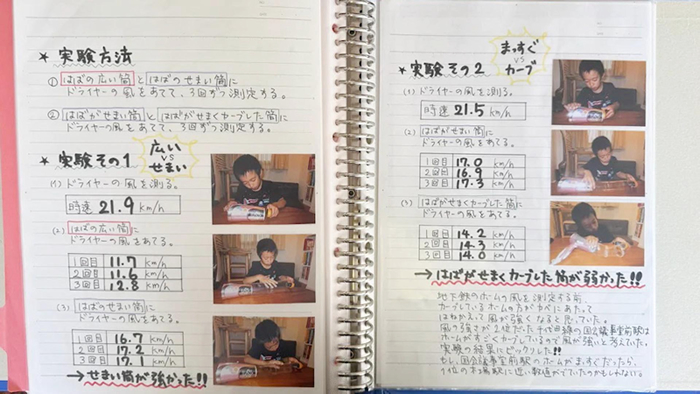 ★実験方法
① はばの広い筒とはばのせまい筒に
ドライヤーの風をあてて、3回ずつ測定する。
② はばがせまい筒とはばがせまくカーブした筒に
ドライヤーの風をあてて、3回ずつ測定する。
★実験その1
広い
VS
せまい
(1) ドライヤーの風を測る。
時速 21.9 km/h
(2) はばの広い筒に
ドライヤーの風をあてる。
1回目 11.7 km/h
2回目 11.6 km/h
3回目 12.8 km/h
(3) はばのせまい筒に
ドライヤーの風をあてる。
1回目 16.7 km/h
2回目 17.2 km/h
3回目 17.1 km/h
→せまい筒が強かった!!
★実験その2
まっすぐ
VS
カーブ
(1) ドライヤーの風を測る。
時速 21.5 km/h
(2) はばがせまい筒に
ドライヤーの風をあてる。
1回目 17.0 km/h
2回目 16.9 km/h
3回目 17.3 km/h
(3) はばがせまくカーブした筒に
ドライヤーの風をあてる。
1回目 14.2 km/h
2回目 14.3 km/h
3回目 14.0 km/h
→はばがせまくカーブした筒が弱かった!!
地下鉄のホームの風を測定する前、
カーブしているホームの方がカベにあたって
はねかえって風が強くなると思っていた。
風の強さが2位だった千代田線の国会議事堂前駅は
ホームがすごくカーブしているので風が強いと考えていた。
実験の結果にビックリした!!
もし、国会議事堂前駅のホームがまっすぐだったら、
1位の木場駅に近い数値がでていたのかもしれない。